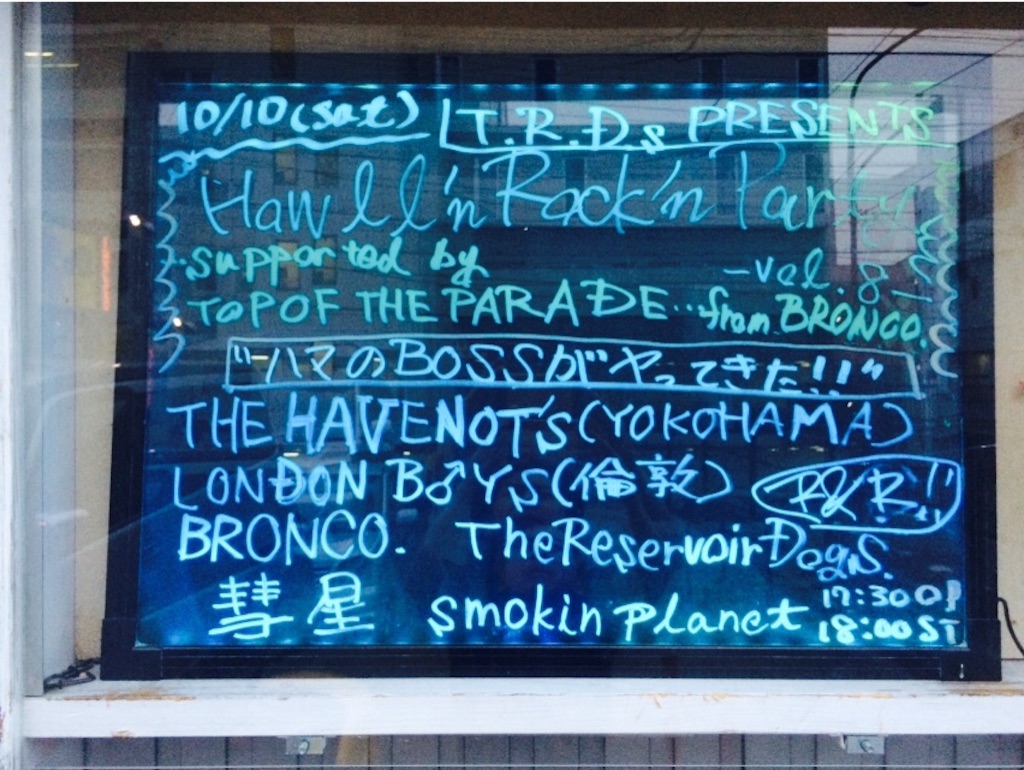 10/10(sat) T.R.Ds PRESENTS
Hawll'n Rock'n Party
supported by -vol.8-
TOP OF THE PARADE…from BRONCO.
"ハマのBOSSがヤってきた!!"
THE HAVENOT's(YOKOHAMA)
LONDON B♂YS(倫敦) R&R!!
BRONCO. The Reservoir Dogs.
彗星 smokin planet 17:30 OP
18:00 ST